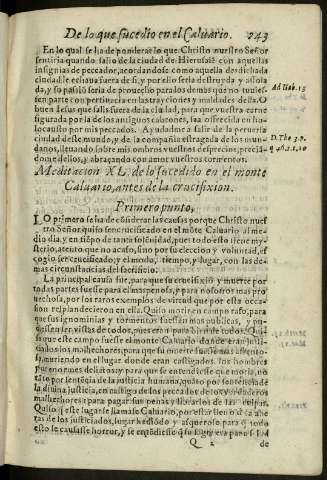 De lo que sucedio en el Calvario. 243
En lo qual se ha de ponderar lo que Christo nuestro Señor
sentiria quando salio de la ciudad de Hierusalē con aquellas
insignias de peccador, acordandose como aquella desdichada
ciudad le echava fuera de si, y por ello seria destruyda y assola
da, y su passiō seria de provecho para los demas que no tuuies
sen parte con pertinacia en las trayciones y maldades della. O
buen Iesus, que salis fuera de la ciudad, para que vuestra carne
figurada por la de los antiguos cabrones, sea offrecida en ho-
locausto por mis peccados. Ayudadme a salir de la peruersa
ciudad deste mundo, y de la compañia estragada de los mun-
danos, lleuando sobre mis ombros vuestros desprecios, precia-
dome dellos, y abraçando con amor vuestros tormentos.
Ad Heb. 13
D. Tho 3. p.
q 46. a. 1. 10
Meditacion XL. de lo sucedido en el monte
Calvario, antes de la crucifixion.
Primero punto,
LO primero se ha de cōsiderar las causas porque Christo nues
tro Señor quiso ser crucificado en el mōte Calvario al me-
dio dia, y en tipo de tanta solenidad, pues todo esto tiene my-
sterio, atento que no acaso, sino por su eleccion y voluntad, es
cogio ser crucificado; y el modo, tiempo, y lugar, con las de-
mas circunstancias del sacrificio.
La principal causa fue, para que su crucifixiō y muerte por
todas partes fuesse para el mas penosa, y para nosotros mas pro
uechosa, por los raros exemplos de virtud que por esta occa-
sion resplandecieron en ella. Quiso morir en campo raso, para
que sus ignominias y tormentos fuessen mas publicas, y pu-
diessen ser vistas de todos, pues era para bien de todos. Qui-
so que este campo fuesse el monte Calvario donde eran justi-
ciados los malhechores, para que su muerte fuesse mas afrento-
sa, muriendo en el lugar donde eran castigados los hombres
por enormes delictos: y para que se entendiesse que moria, no
tāto por sentēcia de la justicia humana, quāto por sentencia de
la diuina justicia, en castigo de los peccados de todos
malhechores: para pagar sus penas y librarlos de las culpas.
Quiso q̄ este lugar se llamasse Calvario, por estar lleno de cala
ueras de los justiciados, lugar hediōdo y asqueroso para q̄ todo
esto le causasse horror, y se entēdiesse q̄
Q 2 de